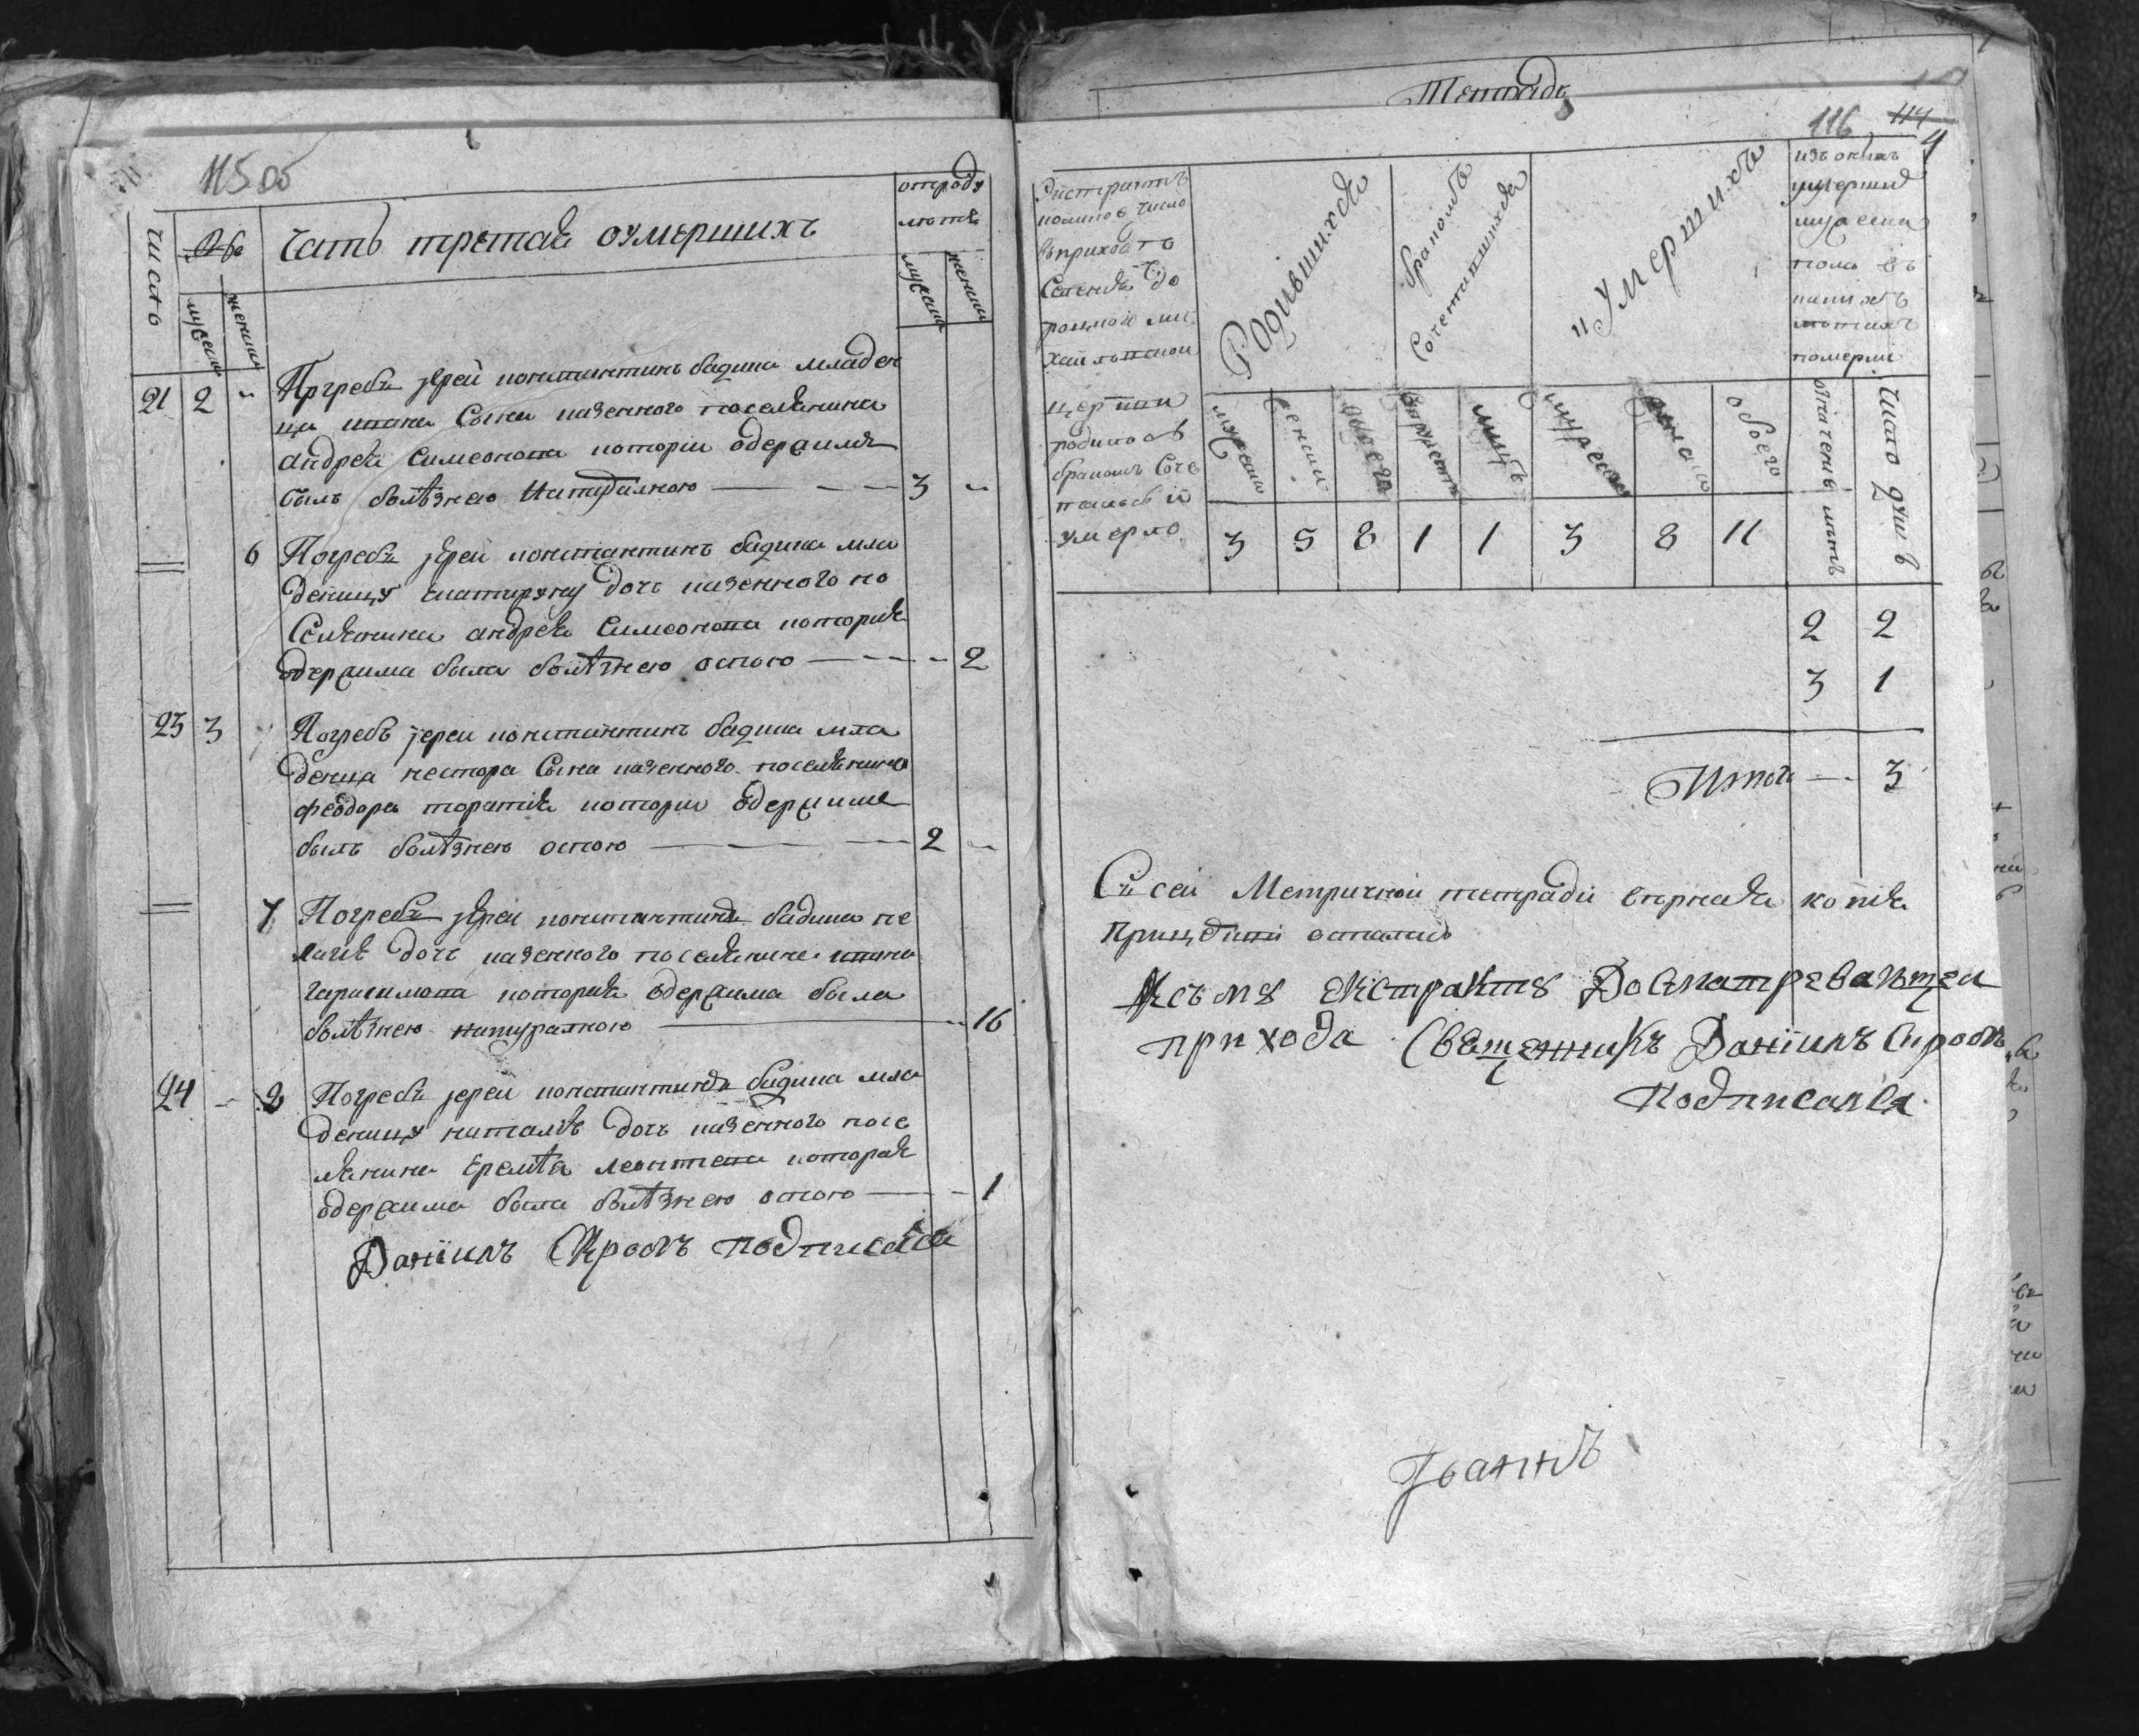 115 об
число
№
Часть третая оумершихъ
отроду
лѣта
мужска
женска
мужска
женска
21 2 Погребъ їерей константинъ бадика младен
ца ивана сына казенного поселянина
андрея симеонова которїи одержимъ
былъ болѣзнею натуралною 3
6 Погребъ їерей константинъ бадика мла
деницу екатерину дочь казенного по
селянина андрея симеонова которая
одержима была болѣзнею оспою 2
23 3 Погребъ їереи константинъ бадика мла
денца нестора сына казенного поселянина
феодора которїи одержимъ
былъ болѣзнею оспою 2
7 Погребъ їереи константинъ бадика пе
лагїю дочь казенного поселянина ивана
гарасимова которая одержима была
болѣзнею натуралною 16
24 8 Погребъ їереи константинъ бадика мла
деницу наталїю дочь казенного посе
лянина еремѣя леонтева которая
одержима была болѣзнею оспою 1
Данїилъ подписался
Тетрадь
116 114
4
Екстрактъ
коликое число
въ приходѣ
селенїя До
роцкого ми
хаиловской
церкви
родилось
бракомъ соче
талось и
умерло
Родившихся
бракомъ
Сочетавшихся
и Умершихъ
изъ оныхъ
умершихъ
мужеска
пола въ
какихъ
лѣтахъ
померли
мужеска
женска
обоего
мужеска
женска
обоего
число душъ
3 5 8 1 1 3 8 11
2 2
3 1
Итого 3
Съ сей Метричной тетради верная копїя
при церкви осталась
Къ сему екстракту Досматревающеи
прихода Священникъ Данїилъ
подписался
Іоаннъ